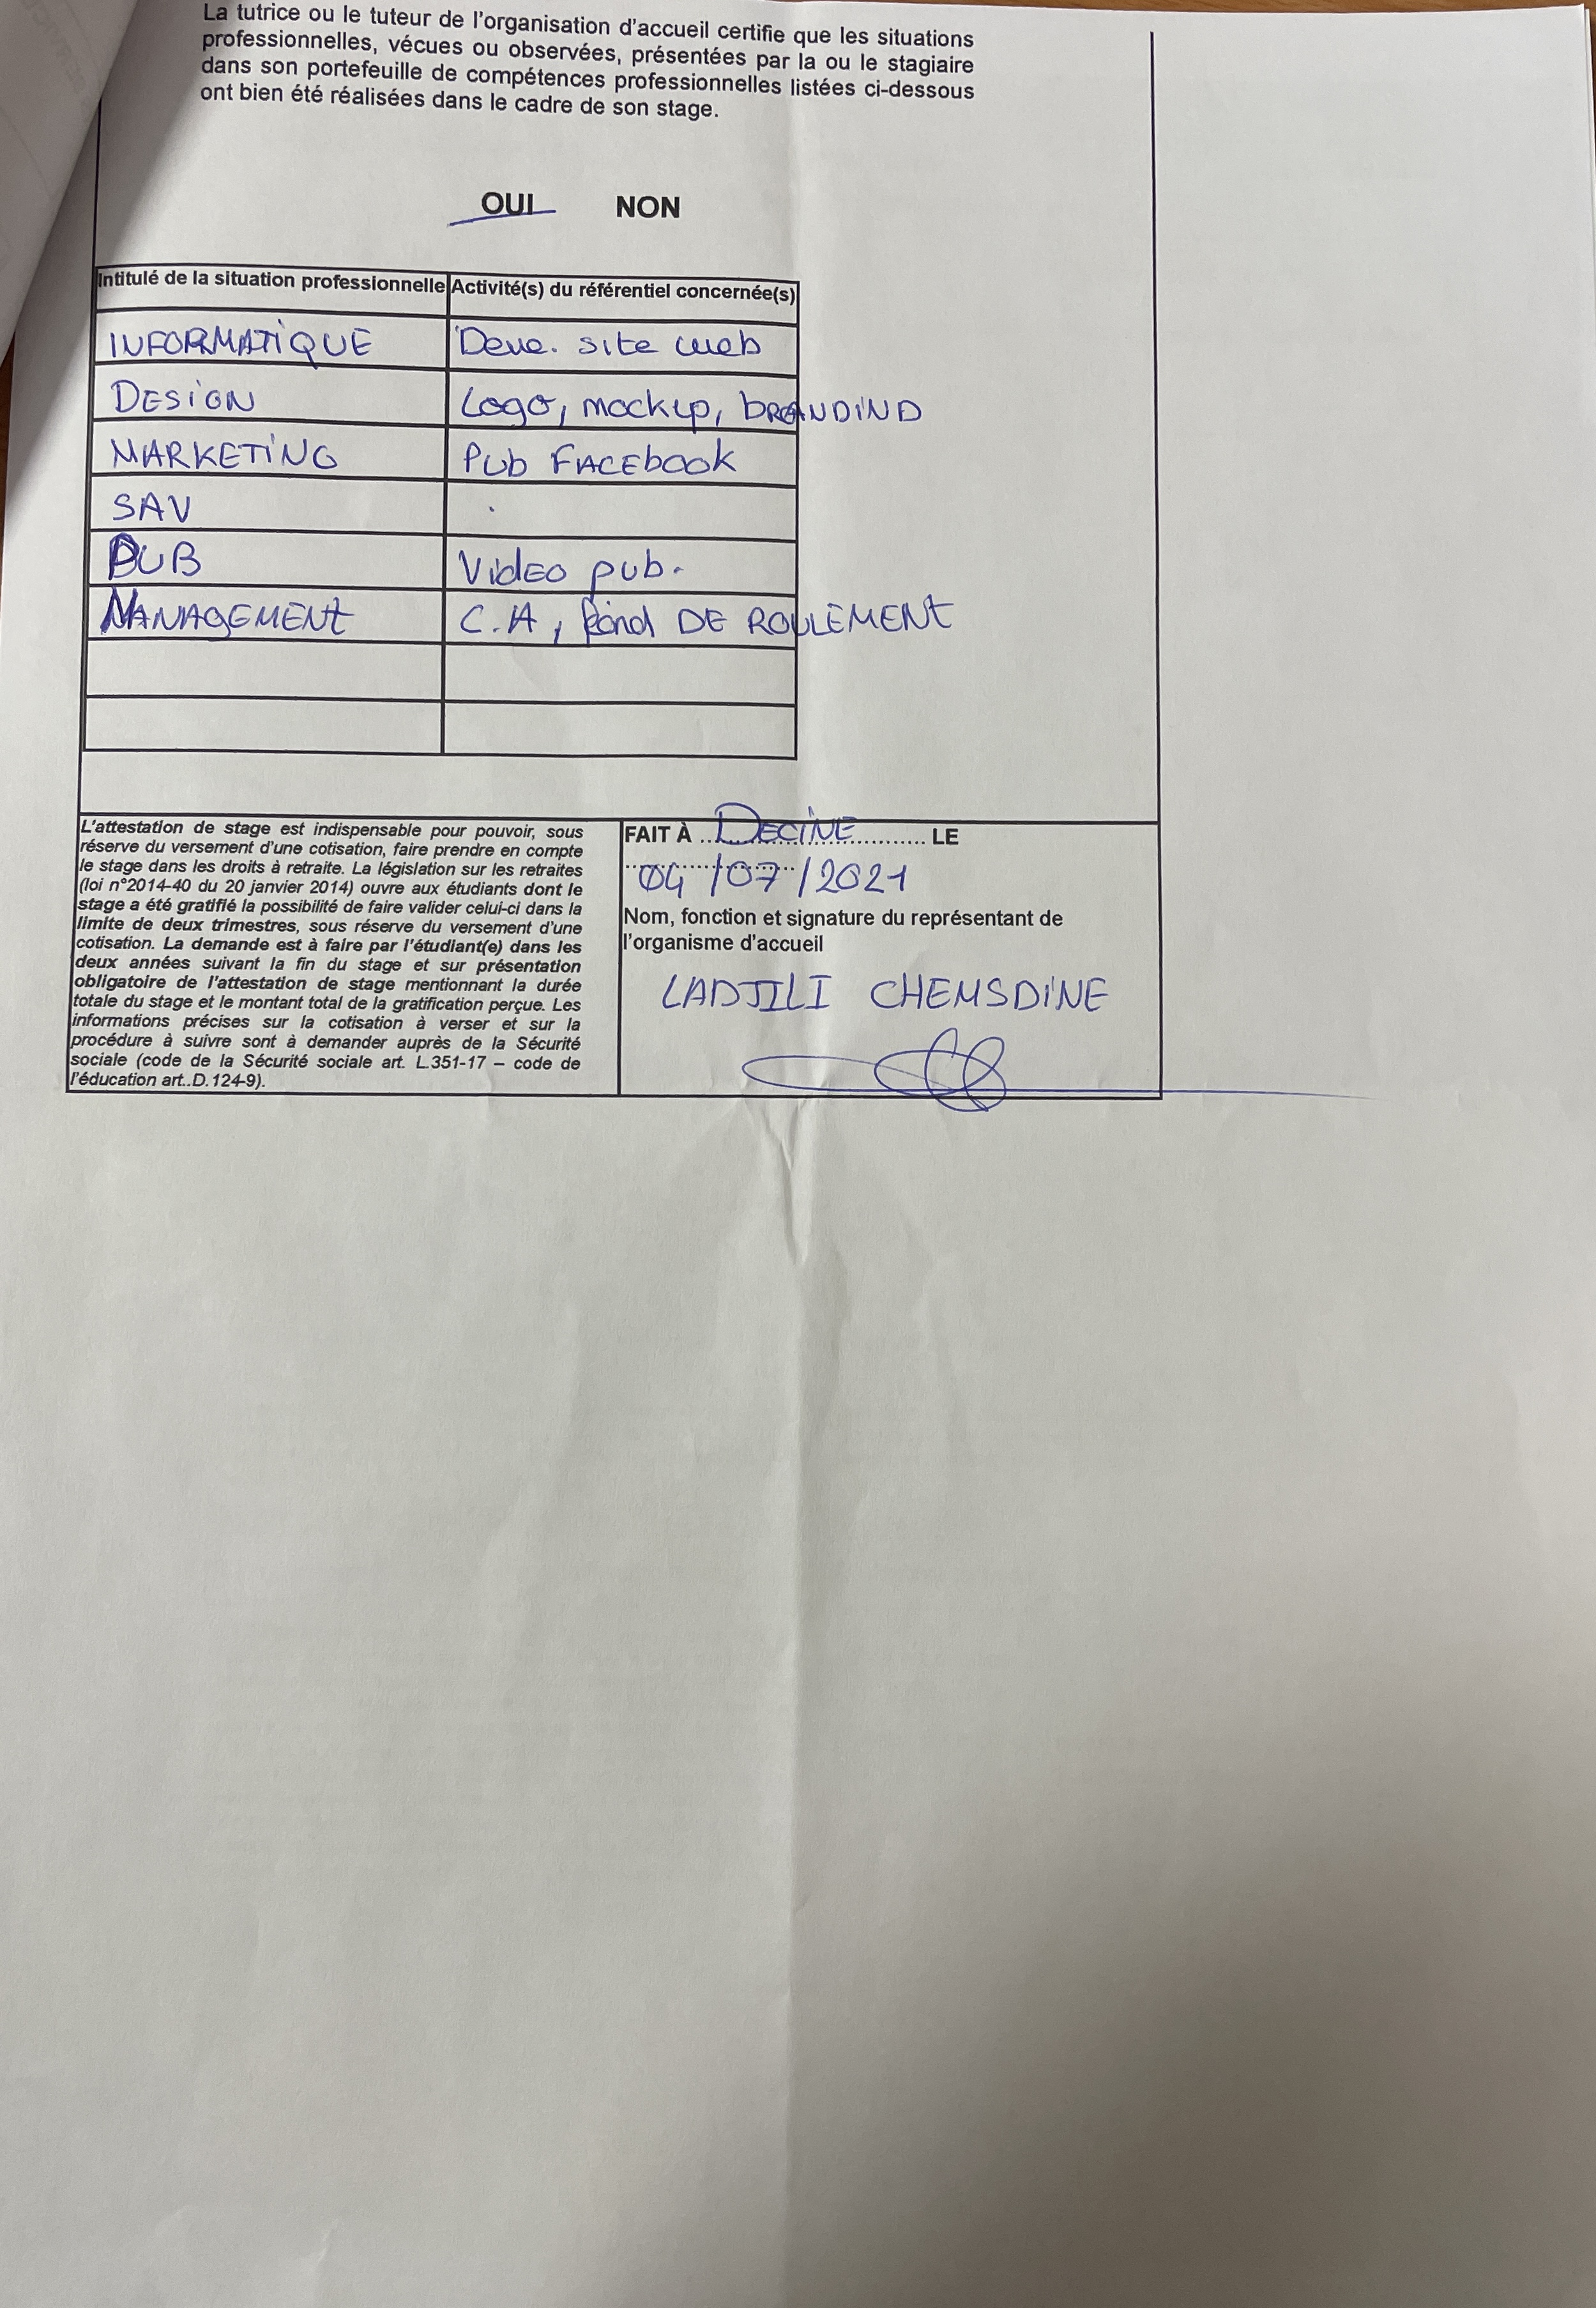 La tutrice ou le tuteur de l'organisation d'accueil certifie que les situations
professionnelles, vécues ou observées, présentées par la ou le stagiaire
dans son portefeuille de compétences professionnelles listées ci-dessous
ont bien été réalisées dans le cadre de son stage.
OUI NON
Intitulé de la situation professionnelle Activité(s) du référentiel concernée(s)
INFORMATIQUE Deve. site web
DESIGN Logo, mockup, bRANDIND
MARKETING Pub FACEbook
SAV
PUB VidEO pub.
MANAGEMENt C.A, fond DE ROULEMENt
L'attestation de stage est indispensable pour pouvoir, sous
réserve du versement d'une cotisation, faire prendre en compte
le stage dans les droits à retraite. La législation sur les retraites
(loi n°2014-40 du 20 janvier 2014) ouvre aux étudiants dont le
stage a été gratifié la possibilité de faire valider celui-ci dans la
limite de deux trimestres, sous réserve du versement d'une
cotisation. La demande est à faire par l'étudiant(e) dans les
deux années suivant la fin du stage et sur présentation
obligatoire de l'attestation de stage mentionnant la durée
totale du stage et le montant total de la gratification perçue. Les
informations précises sur la cotisation à verser et sur la
procédure à suivre sont à demander auprès de la Sécurité
sociale (code de la Sécurité sociale art. L.351-17 – code de
l'éducation art..D.124-9).
FAIT À DECINE LE
04/07/2021
Nom, fonction et signature du représentant de
l'organisme d'accueil
LADJILI CHEMSDINE